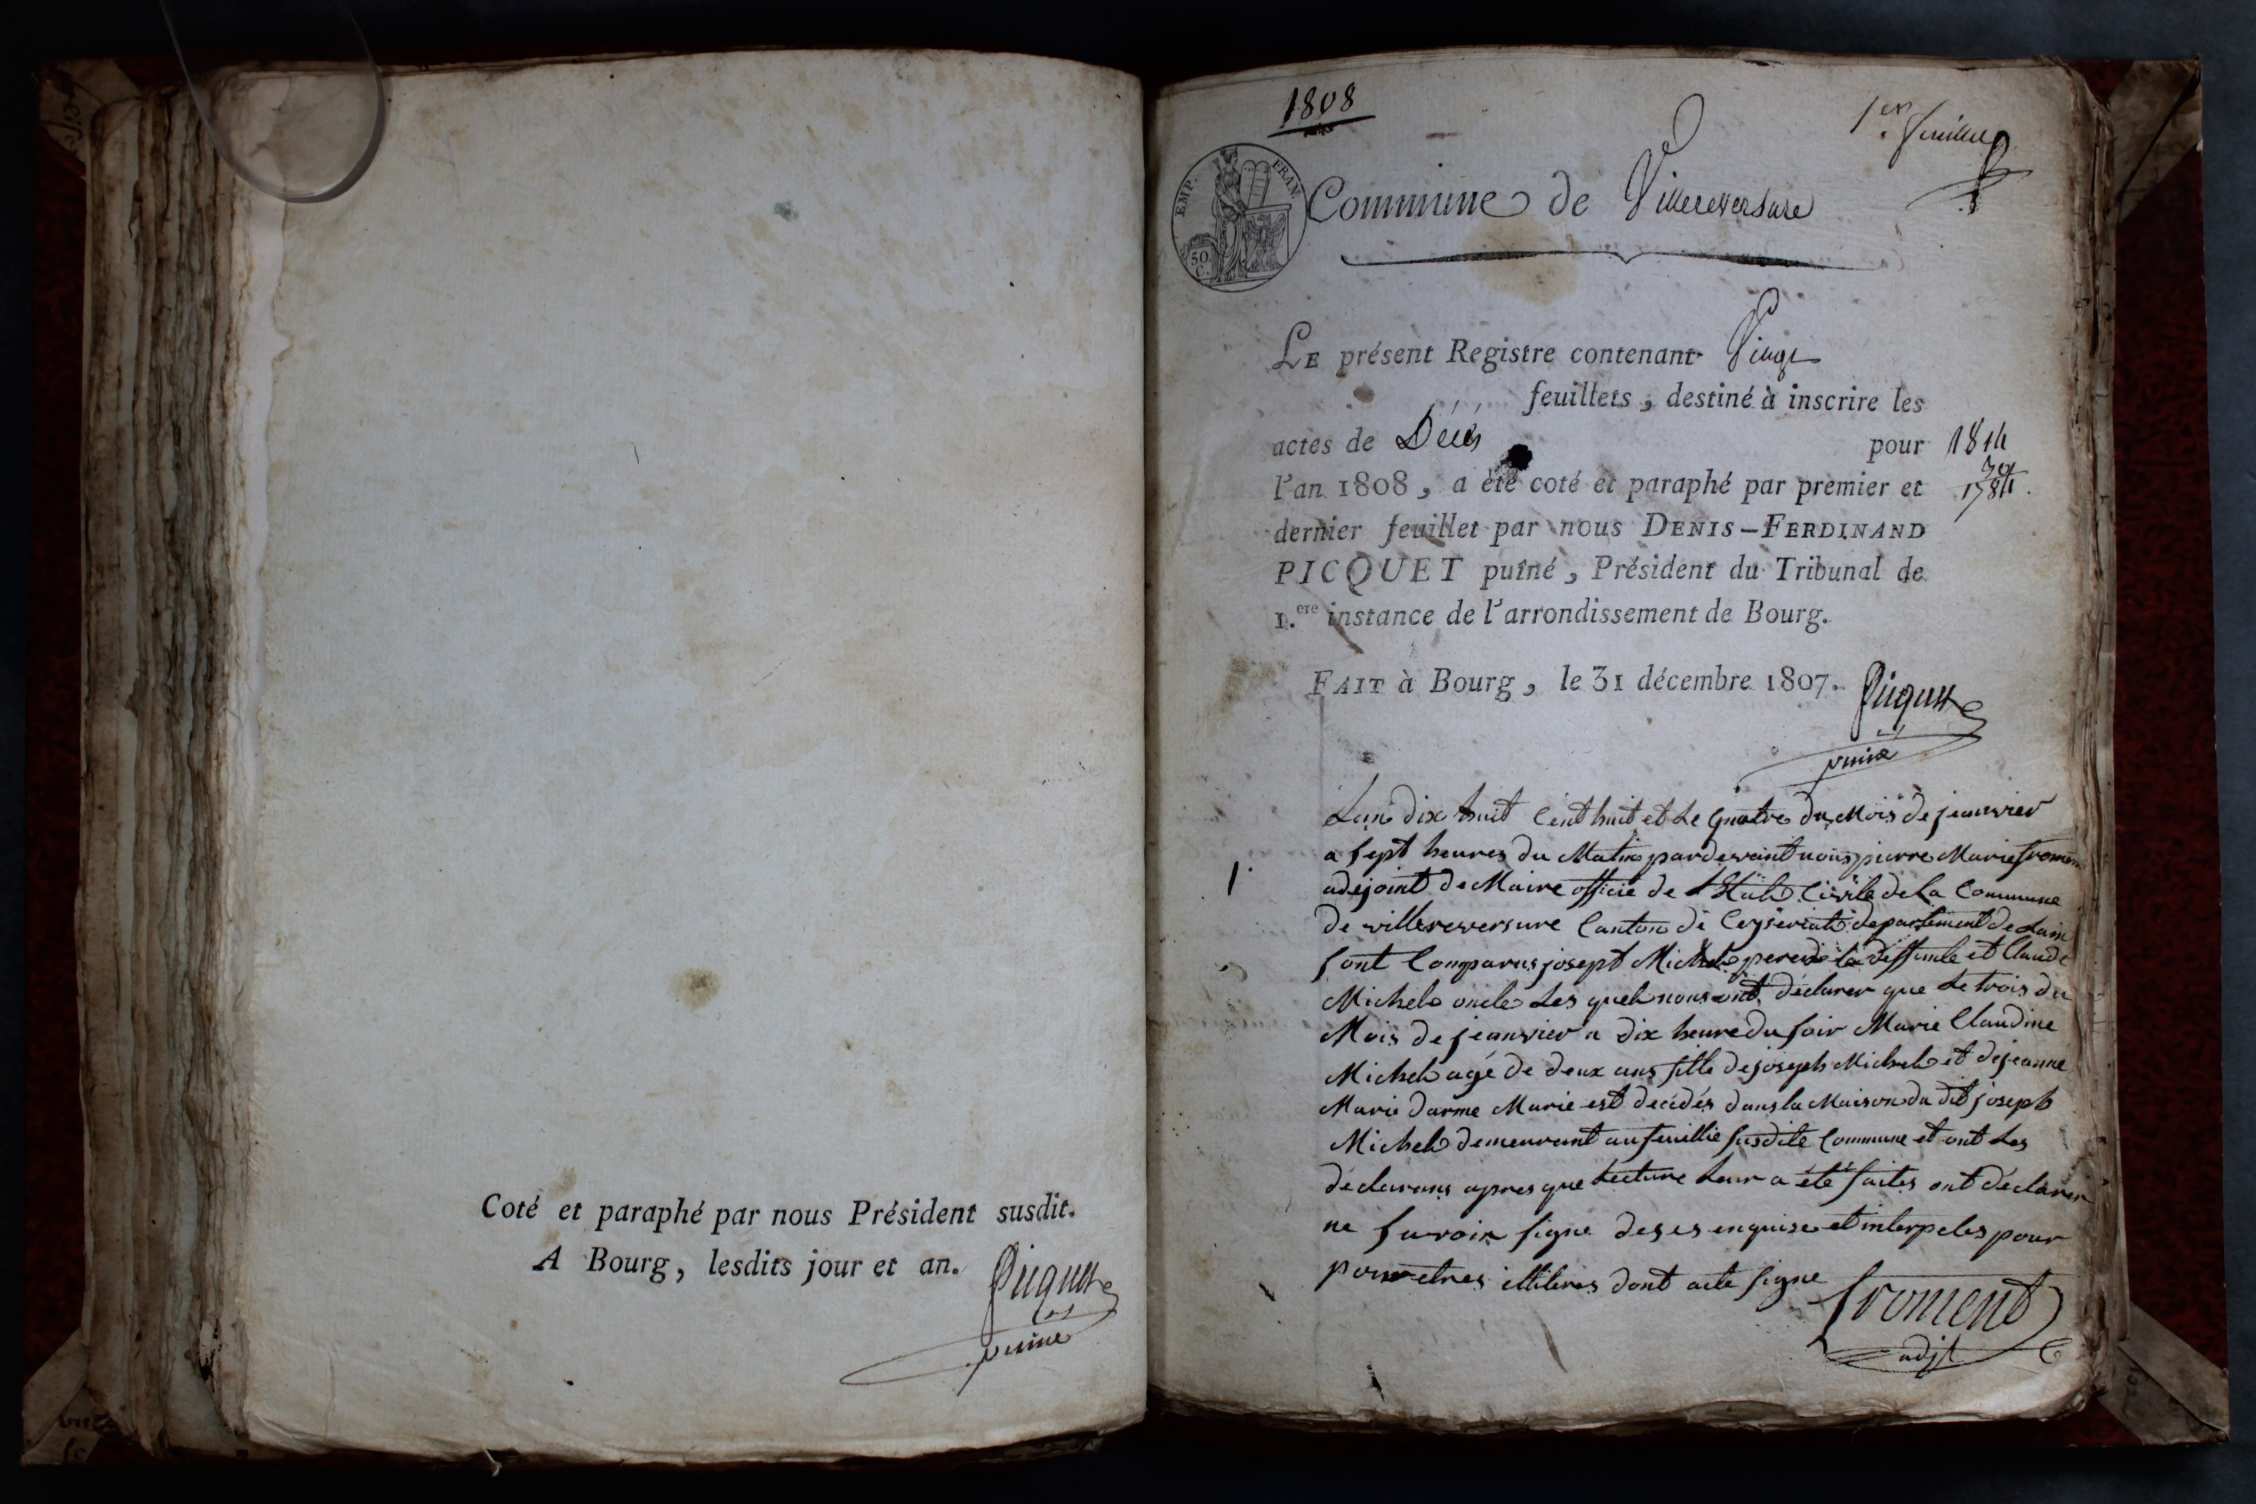 Coté et paraphé par nous Président susdit.
A Bourg, lesdits jour et an.
Picquet
puiné
1808
1er feuillet
EMP. FRAN.
50 C.
Commune de Villereversure
LE présent Registre contenant Vingt
feuillets, destiné à inscrire les
actes de Décés pour
l'an 1808, a été coté et paraphé par premier et
dernier feuillet par nous DENIS-FERDINAND
PICQUET puîné, Président du Tribunal de
1.ere instance de l'arrondissement de Bourg.
FAIT à Bourg, le 31 décembre 1807.
Picquet
puiné
1814
30
1784
1
Lan dix huit Cent huit et Le quatre du Mois de jeanvier
a sept heures du Matin pardevant nous pierre Marie froment
adejoint de Maire officié de L'Etat Civile de La Commune
de villereversure Canton de Ceyseriat departement de Lain
sont Comparus josept Michel pere de la deffunte et Claude
Michel oncle Les quels nous ont déclarer que Le trois du
Mois de jeanvier a dix heure du soir Marie Claudine
Michel agé de deux ans fille de joseph Michel et de jeanne
Marie darme Marie est decédés dans la Maison du dit joseph
Michel demeurant au feuillie susdite Commune et ont Les
déclarans apres que Lecture Leur a été faites ont déclarer
ne savoir signe de ses enquise et interpeles pour
pour etres illiteres dont acte signe
froment
adjt